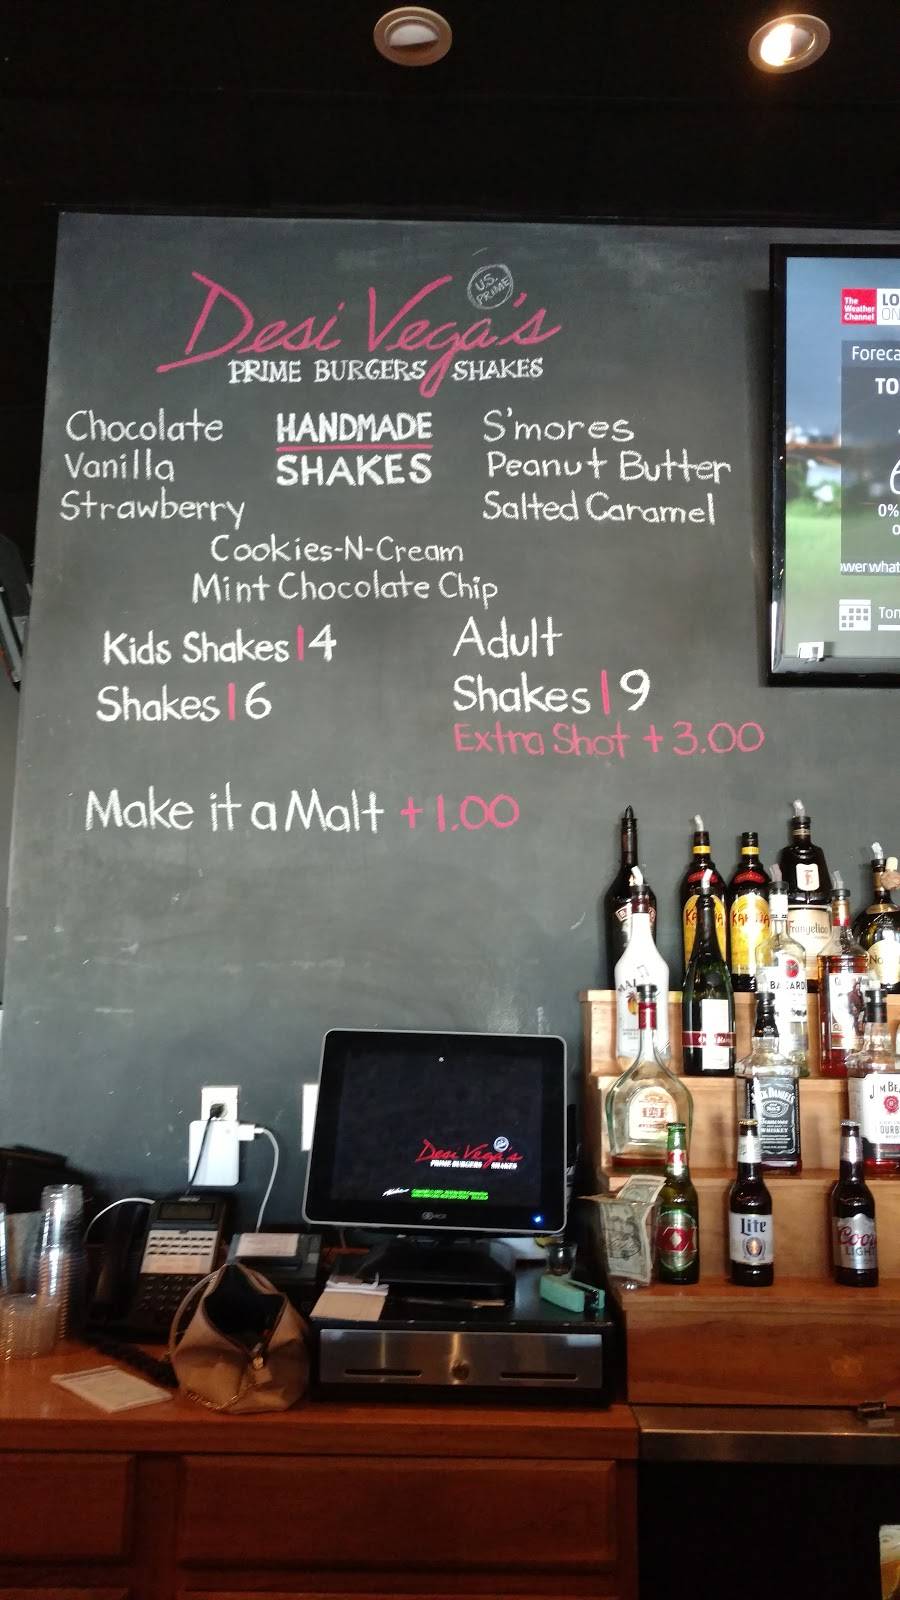 U.S. PRIME
Desi Vega's
PRIME BURGERS SHAKES
Chocolate
Vanilla
Strawberry
HANDMADE
SHAKES
S'mores
Peanut Butter
Salted Caramel
Cookies-N-Cream
Mint Chocolate Chip
Kids Shakes | 4
Shakes | 6
Adult
Shakes | 9
Extra Shot + 3.00
Make it a Malt + 1.00
The
Weather
Channel
LO
ON
Foreca
TO
0%
ower what
Ton
Desi Vega's
PRIME BURGERS SHAKES
Frangelico
JACK DANIEL'S
WHISKEY
JIM BE
OURB
XX
Lite
Coors
LIGHT